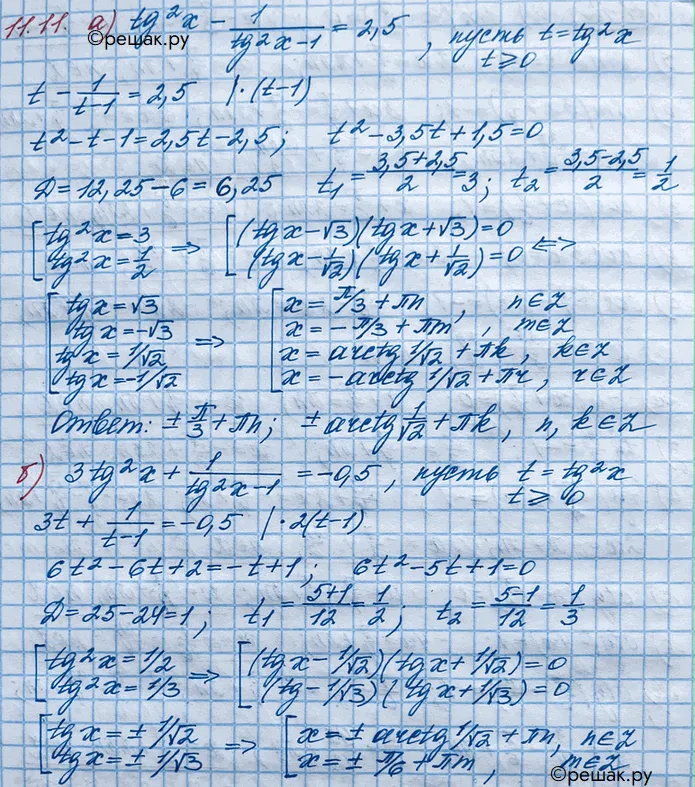 11.11. а) tg²x - 1/(tg²x-1) = 2,5, пусть t = tg²x
©решак.ру t ⩾ 0
t - 1/(t-1) = 2,5 |·(t-1)
t² - t - 1 = 2,5t - 2,5; t² - 3,5t + 1,5 = 0
Д = 12,25 - 6 = 6,25 t₁ = (3,5+2,5)/2 = 3; t₂ = (3,5-2,5)/2 = 1/2
[ tg²x = 3 => [ (tgx - √3)(tgx + √3) = 0
tg²x = 1/2 (tgx - 1/√2)(tgx + 1/√2) = 0 <=>
[ tgx = √3 [ x = π/3 + πn, n ∈ Z
tgx = -√3 => x = -π/3 + πm, m ∈ Z
tgx = 1/√2 x = arctg 1/√2 + πk, k ∈ Z
tgx = -1/√2 x = -arctg 1/√2 + πr, r ∈ Z
Ответ: ± π/3 + πn; ± arctg 1/√2 + πk, n, k ∈ Z
б) 3tg²x + 1/(tg²x-1) = -0,5, пусть t = tg²x
t ⩾ 0
3t + 1/(t-1) = -0,5 |·2(t-1)
6t² - 6t + 2 = -t + 1; 6t² - 5t + 1 = 0
Д = 25 - 24 = 1; t₁ = (5+1)/12 = 1/2; t₂ = (5-1)/12 = 1/3
[ tg²x = 1/2 => [ (tgx - 1/√2)(tgx + 1/√2) = 0
tg²x = 1/3 (tg - 1/√3)(tgx + 1/√3) = 0
[ tgx = ± 1/√2 => [ x = ± arctg 1/√2 + πn, n ∈ Z
tgx = ± 1/√3 x = ± π/6 + πm, m ∈ Z
©решак.ру